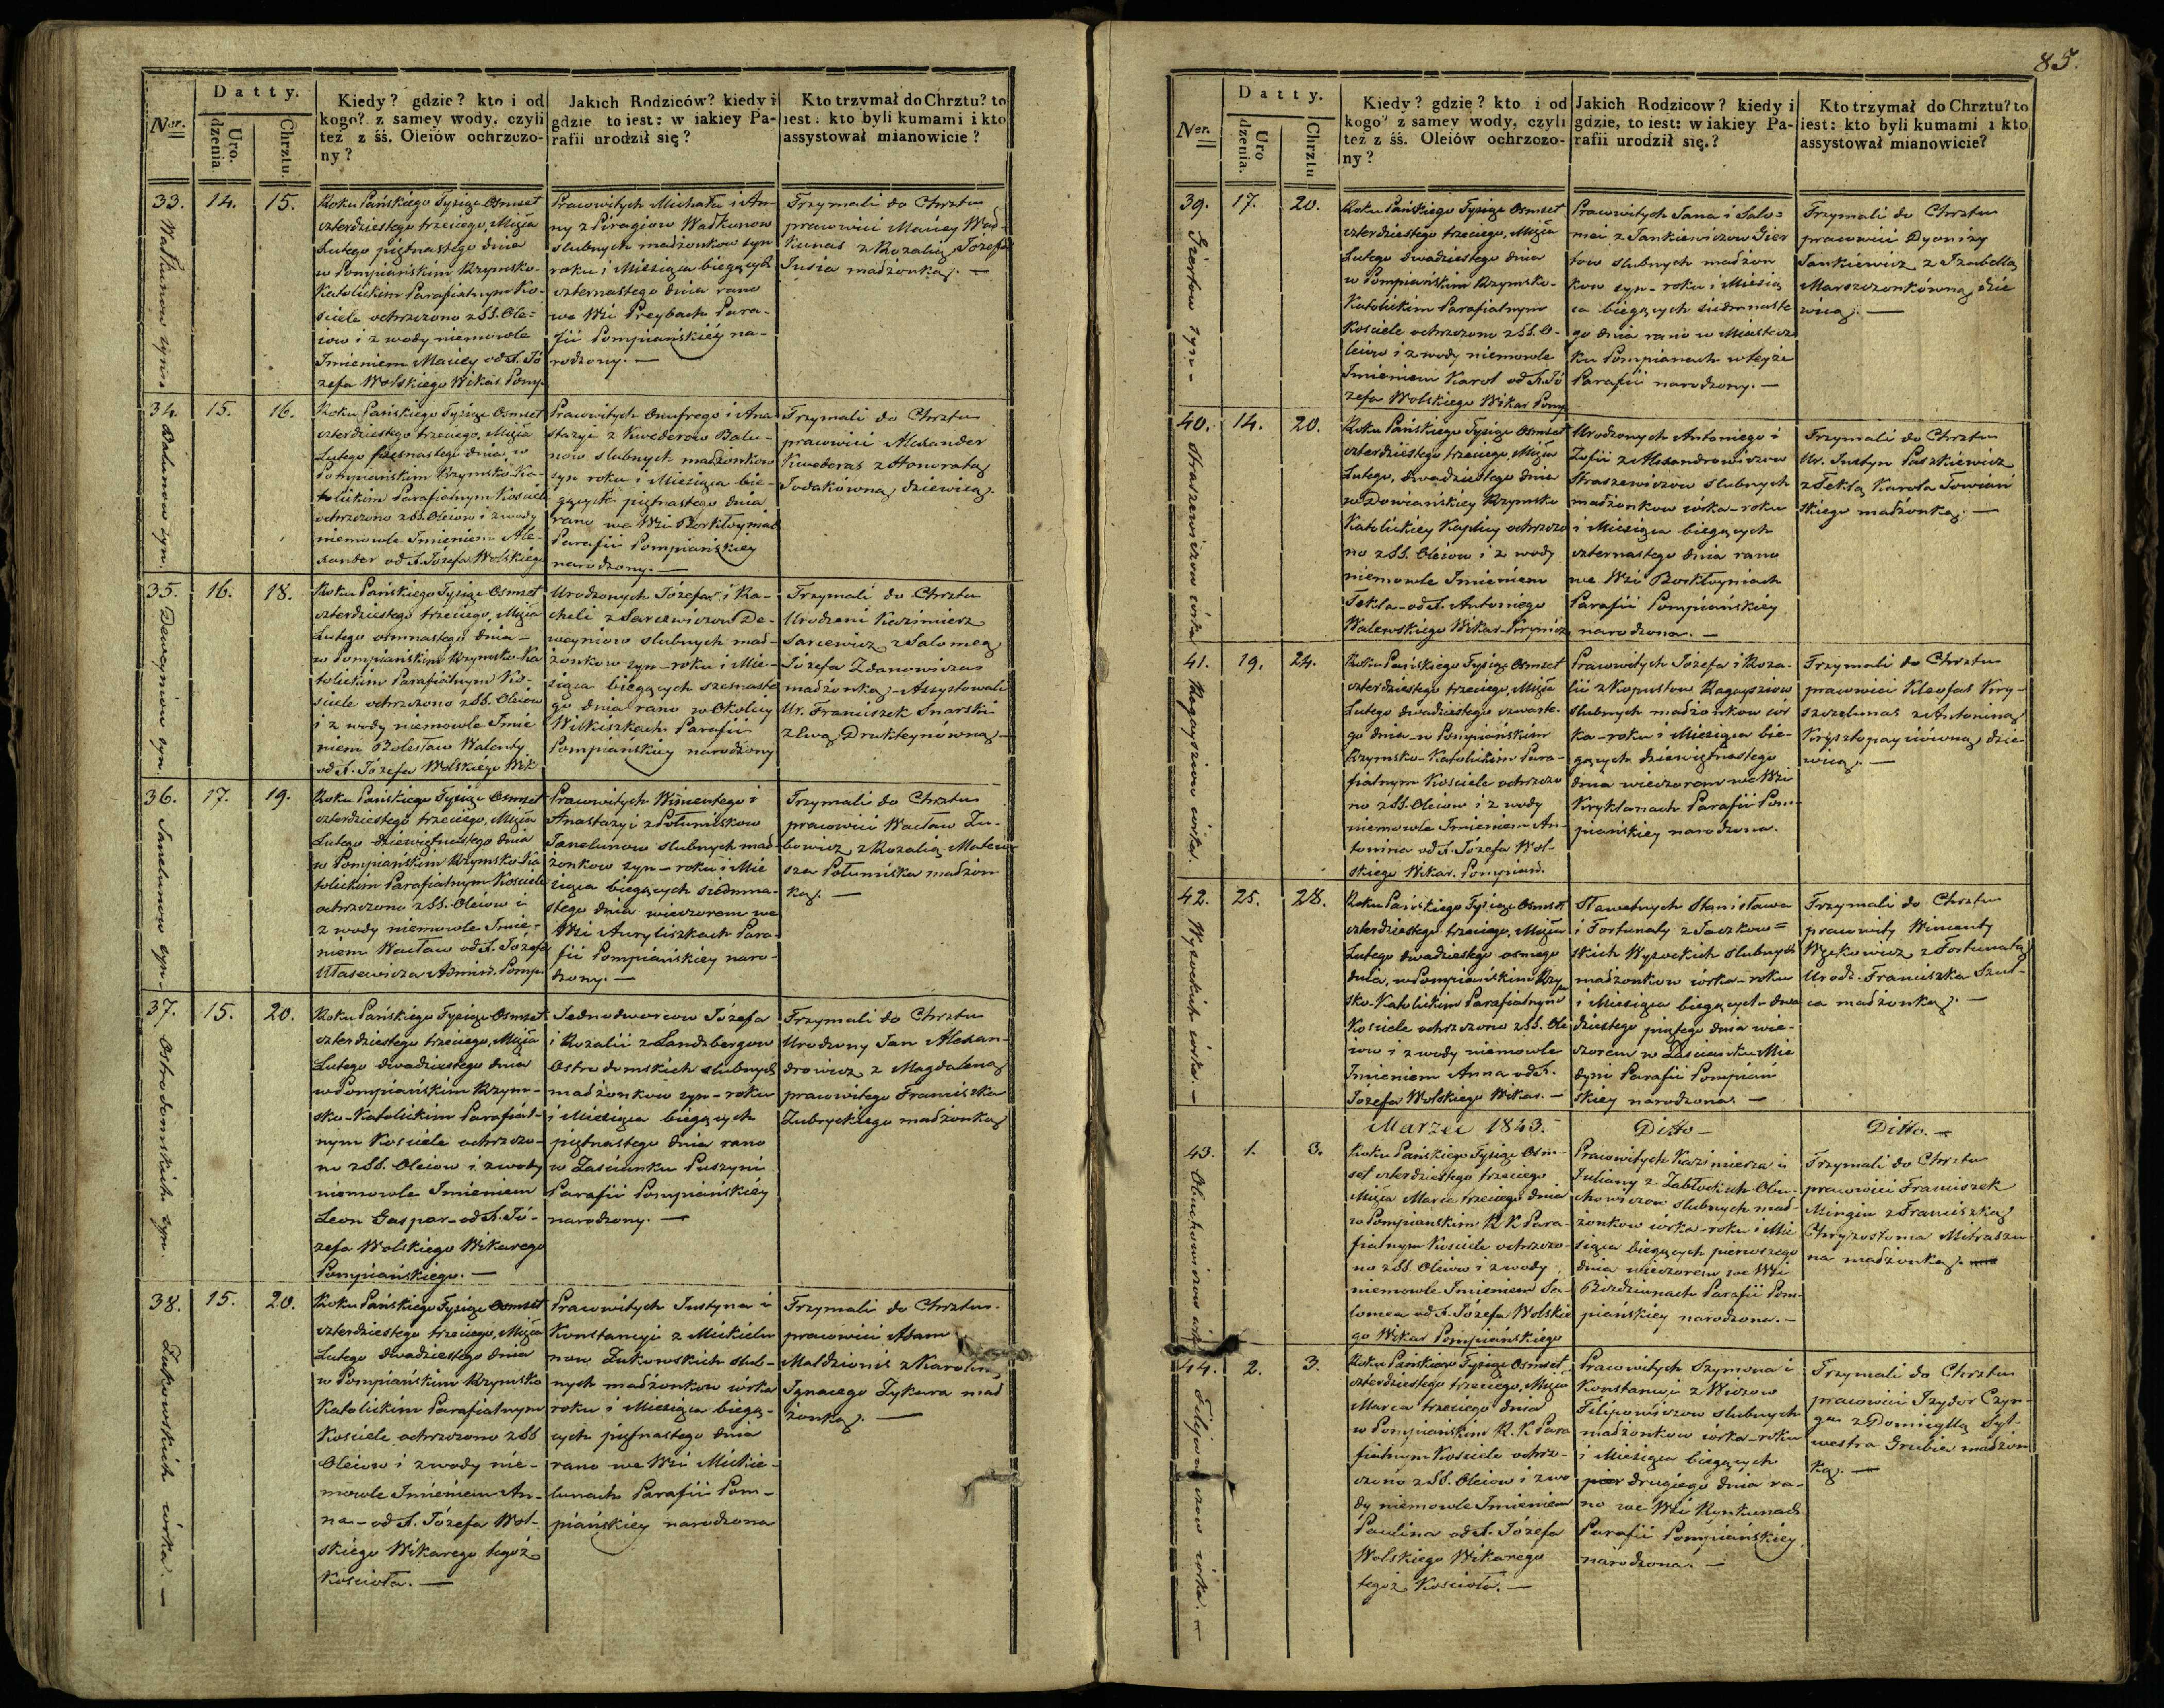 85.
Datty.
Nor.
Uro.
dzenia.
Chrztu.
Kiedy? gdzie? kto i od
kogo? z samey wody, czyli
też z śś. Oleiów ochrzczo-
ny?
Jakich Rodziców? kiedy i
gdzie to iest: w iakiey Pa-
rafii urodził się?
Kto trzymał do Chrztu? to
iest: kto byli kumami i kto
assystował mianowicie?
33.
14.
15.
Roku Pańskiego Tysiąc Osmset
czterdziestego trzeciego, Msca
Lutego piętnastego dnia
w Pompiańskim Rzymsko-
Katolickim Parafialnym Ko-
sciele ochrzczono z SS. Ole=
iow i z wody niemowle
Imieniem Maciey od X. Jó
zefa Wolskiego Wikar. Pomp.
Pracowitych Michała i An-
ny z Piragiow Watkunow
slubnych madżonkow syn
roku i Miesiąca biegących
czternastego dnia rano
we Wsi Preybach Para-
fii Pompiańskiey na-
rodzony. —
Trzymali do Chrztu
pracowici Maciey Wat-
kunas z Rozalią Józefa
Jusia madżonką. —
34.
15.
16.
Balunow syn.
Roku Pańskiego Tysiąc Osmset
czterdziestego trzeciego, Msca
Lutego szesnastego dnia, w
Pompiańskim Rzymsko-Ka-
tolickim Parafialnym Kosciele
ochrzczono z SS. Oleiow i z wody
niemowle Imieniem Ale-
xander od X. Józefa Wolskiego
Pracowitych Onufrego i Ana
stazyi z Kwederow Balu-
now slubnych madżonkow
syn roku i Miesiąca bie-
gących piętnastego dnia
rano we Wsi
Parafii Pompiańskiey
narodzony. —
Trzymali do Chrztu
pracowici Alexander
Kwederas z Honoratą
Jodakówną dziewicą.
35.
16.
18.
Deweyniow syn.
Roku Pańskiego Tysiąc Osmset
czterdziestego trzeciego, Msca
Lutego osmnastego dnia -
w Pompiańskim Rzymsko-Ka
tolickim Parafialnym Ko-
sciele ochrzczono z SS. Oleiow
i z wody niemowle Imie
niem Bolesław Walenty
od X. Józefa Wolskiego Wik
Urodzonych Józefa i Ra-
cheli z Sarcewiczow De-
weyniow slubnych mad-
żonkow syn - roku i Mie-
siąca biegących szesnaste
go dnia rano w Okolicy
Wilkiszkach Parafii
Pompiańskiey narodzony
Trzymali do Chrztu
Urodzeni Kazimierz
Sarcewicz z Salomeą
Józefa Zdanowicza
madżonką - Assystowali
Ur. Franciszek Snarski
z Ewą Drukteynówną -
36.
17.
19.
Janelunow syn -
Roku Pańskiego Tysiąc Osmset
czterdziestego trzeciego, Msca
Lutego dziewiętnastego dnia
w Pompiańskim Rzymsko-Ka
tolickim Parafialnym Kosciele
ochrzczono z SS. Oleiow i
z wody niemowle Imie-
niem Wacław od X. Józefa
Ułasewicza Admin. Pomp.
Pracowitych Wincentego i
Anastazyi z Połumiskow
Janelunow slubnych mad
żonkow syn - roku i Mie
siąca biegących siedmna-
stego dnia wieczorem we
Wsi Auryliszkach Para-
fii Pompiańskiey naro-
dzony. —
Trzymali do Chrztu
pracowici Wacław Zu-
bowicz z Rozalią Mateu-
sza Połumiska madżon
ką. —
37.
15.
20.
Ostrodomskich syn.
Roku Pańskiego Tysiąc Osmset
czterdziestego trzeciego, Msca
Lutego dwudziestego dnia
w Pompiańskim Rzym-
sko-Katolickim Parafial-
nym Kosciele ochrzczo-
no z SS. Oleiow i z wody
niemowle Imieniem
Leon Gaspar - od X. Jó-
zefa Wolskiego Wikarego
Pompiańskiego. —
Jednodworcow Józefa
i Rozalii z Landzbergow
Ostrodomskich slubnych
madżonkow syn - roku
i Miesiąca biegących
piętnastego dnia rano
w Zaścianku Puszyni
Parafii Pompiańskiey
narodzony. —
Trzymali do Chrztu
Urodzony Jan Alexan-
drowicz z Magdaleną
pracowitego Franciszka
Zubryckiego madżonką
38.
15.
20.
Żukowskich córka. —
Roku Pańskiego Tysiąc Osmset
czterdziestego trzeciego, Msca
Lutego dwudziestego dnia
w Pompiańskim Rzymsko
Katolickim Parafialnym
Kosciele ochrzczono z SS
Oleiow i z wody nie-
mowle Imieniem An-
na - od X. Józefa Wol-
skiego Wikarego tegoż
Kościoła. —
Pracowitych Justyna i
Konstancyi z Mickielu
now Żukowskich slub-
nych madżonkow córka
roku i Miesiąca biegą-
cych piętnastego dnia
rano we Wsi Mickie-
lunach Parafii Pom-
piańskiey narodzona
Trzymali do Chrztu
pracowici Adam
Maldzionis z Karoliną
Ignacego Zykura mad
żonką. —
Datty.
Nor.
Uro
dzenia.
Chrztu
Kiedy? gdzie? kto i od
kogo? z samey wody, czyli
też z śś. Oleiów ochrzczo-
ny?
Jakich Rodzicow? kiedy i
gdzie, to iest: w iakiey Pa-
rafii urodził się.?
Kto trzymał do Chrztu? to
iest: kto byli kumami i kto
assystował mianowicie?
39.
17.
20.
Giertow syn -
Roku Pańskiego Tysiąc Osmset
czterdziestego trzeciego, Msca
Lutego dwudziestego dnia
w Pompiańskim Rzymsko-
Katolickim Parafialnym
Kosciele ochrzczono z SS. O-
leiow i z wody niemowle
Imieniem Karol od X. Jó
zefa Wolskiego Wikar Pomp
Pracowitych Jana i Salo=
mei z Jankiewiczow Gier
tow slubnych madżon
kow syn - roku i Miesią
ca biegących siedmnaste
go dnia rano w Miastecz
ku Pompianach w teyże
Parafii narodzony. —
Trzymali do Chrztu
pracowici Dyonizy
Jankiewicz z Izabellą
Marszczonkówną dzie
wicą. —
40.
14.
20.
Straszewiczow córka
Roku Pańskiego Tysiąc Osmset
czterdziestego trzeciego, Msca
Lutego, dwudziestego dnia
w Dowiańskiey Rzymsko
Katolickiey Kaplicy ochrzczo
no z SS. Oleiow i z wody
niemowle Imieniem
Tekla - od X. Antoniego
Walewskiego Wikar.
Urodzonych Antoniego i
Zofii z Alexandrowiczow
Straszewiczow slubnych
madżonkow córka - roku
i Miesiąca biegących
czternastego dnia rano
we Wsi
Parafii Pompiańskiey
narodzona. —
Trzymali do Chrztu
Ur. Justyn Paszkiewicz
z Teklą Karola Towian
skiego madżonką. —
41.
19.
24.
Ragaysziow córka.
Roku Pańskiego Tysiąc Osmset
czterdziestego trzeciego, Msca
Lutego dwudziestego czwarte-
go dnia - w Pompiańskim
Rzymsko-Katolickim Para-
fialnym Kosciele ochrzczo
no z SS. Oleiow i z wody
niemowle Imieniem An-
tonina od X. Józefa Wol-
skiego Wikar. Pompiań.
Pracowitych Józefa i Roza-
lii z Kopustow Ragaysziow
slubnych madżonkow cór
ka - roku i Miesiąca bie-
gących dziewiętnastego
dnia wieczorem we Wsi
Kryklanach Parafii Pom-
piańskiey narodzona.
Trzymali do Chrztu
pracowici Kleofas Kry-
szczelunas z Antoniną
dzie-
wicą. —
42.
25.
28.
Wysockich córka. —
Roku Pańskiego Tysiąc Osmset
czterdziestego trzeciego, Msca
Lutego dwudziestego osmego
dnia, w Pompiańskim Rzym
sko-Katolickim Parafialnym
Kosciele ochrzczono z SS. Ole
iow i z wody niemowle
Imieniem Anna od X.
Józefa Wolskiego Wikar. —
Sławetnych Stanisława
i Fortunaty z Saczkow=
skich Wysockich slubnych
madżonkow córka - roku
i Miesiąca biegących - dwu
dziestego piątego dnia wie-
czorem w Zaścianku Mie
dyni Parafii Pompiań
skiey narodzona. —
Trzymali do Chrztu
pracowity Wincenty
z Fortunatą
Urodz. Franciszka Szul-
ca madżonką. —
Marzec 1843. -
Ditto —
Ditto. —
43.
1.
3.
Obuchowiczow
Roku Pańskiego Tysiąc Osm-
set czterdziestego trzeciego
Msca Marca trzeciego dnia
w Pompianskim R K Para-
fialnym Kosciele ochrzczo-
no z SS. Oleiow i z wody
niemowle Imieniem Sa-
lomea od X. Józefa Wolskie
go Wikar Pompiańskiego
Pracowitych Kazimierza i
Juliany z Zabłockich Obu-
chowiczow slubnych mad-
żonkow córka - roku i Mie
siąca biegących pierwszego
dnia wieczorem we Wsi
Birdziunach Parafii Pom-
piańskiey narodzona. —
Trzymali do Chrztu
pracowici Franciszek
Mingin z Franciszką
Chryzostoma Mitraszu
na madżonką. —
44.
2.
3.
Filipowiczow córka. —
Roku Pańskiego Tysiąc Osmset
czterdziestego trzeciego, Msca
Marca trzeciego dnia
w Pompiańskim R. K Para
fialnym Kosciele ochrz-
czono z SS. Oleiow i z wo
dy niemowle Imieniem
Paulina od X. Józefa
Wolskiego Wikarego
tegoż Kościoła. —
Pracowitych Szymona i
Konstancyi z Wiczow
Filipowiczow slubnych
madżonkow córka - roku
i Miesiąca biegących
pier drugiego dnia ra-
no we Wsi Rynkunach
Parafii Pompiańskiey
narodzona. —
Trzymali do Chrztu
pracowici Izydor Czyn-
gas z Domicyllą Syl-
westra Grubia madżon
ką. —